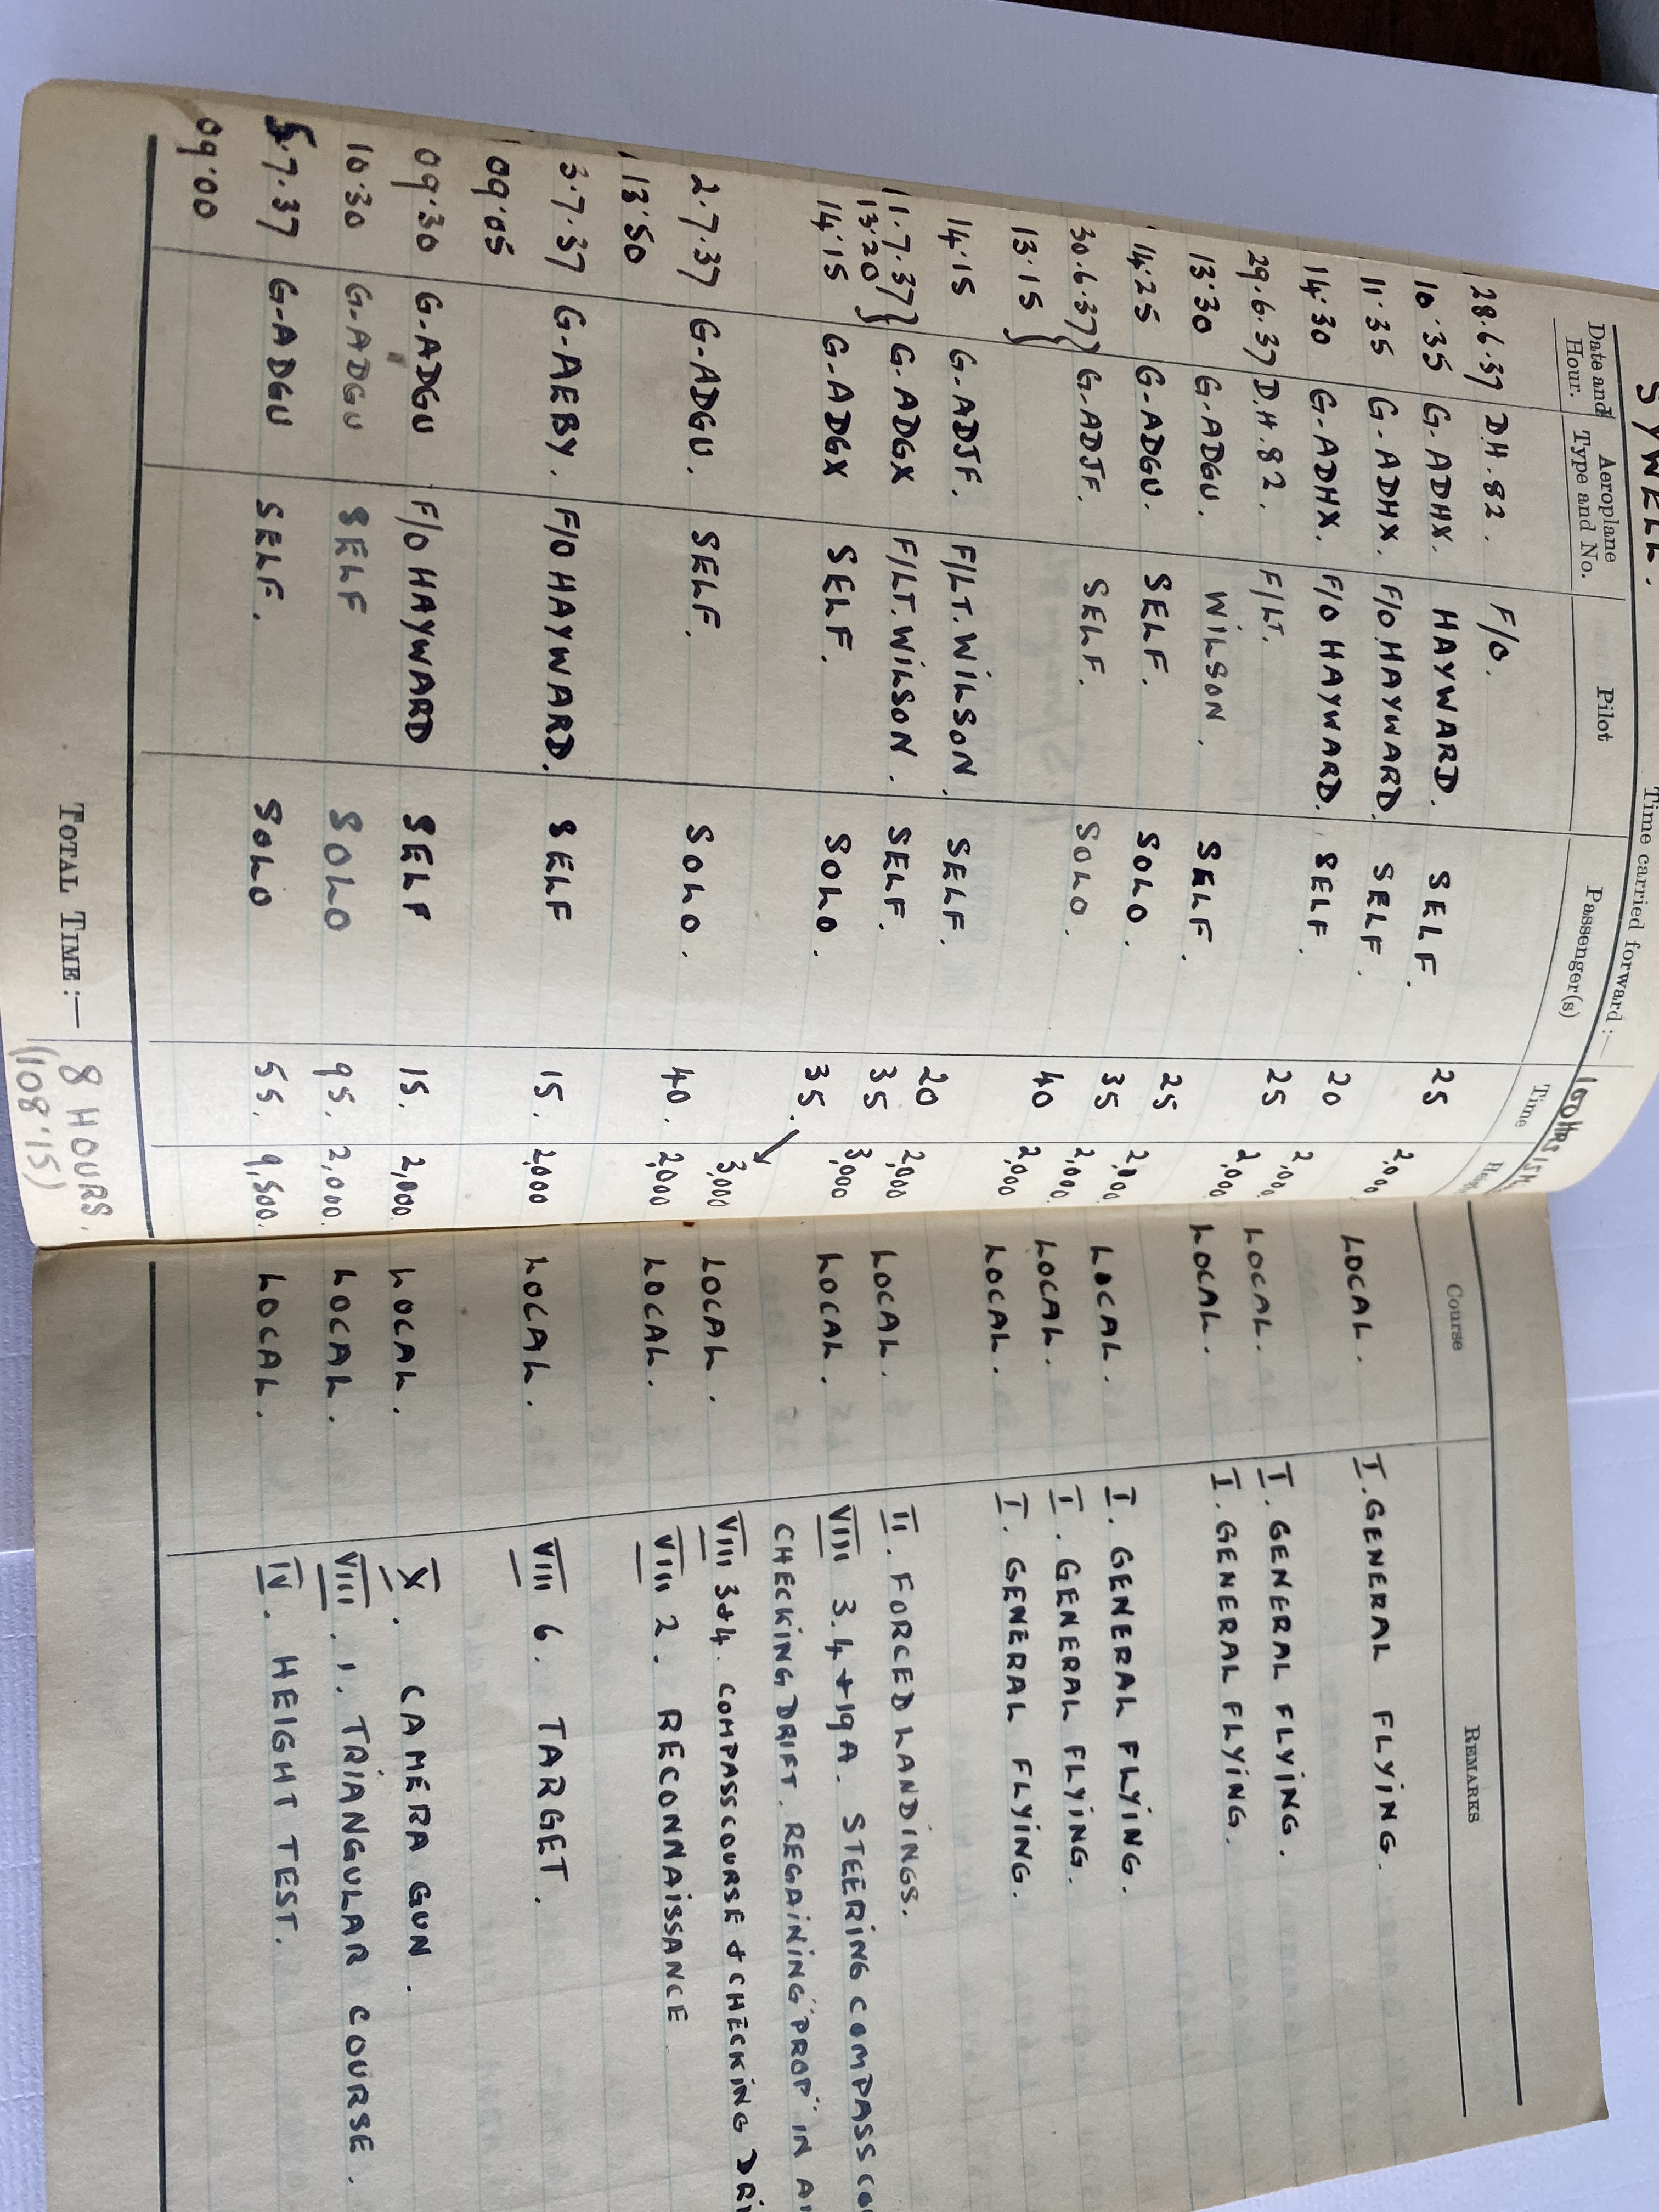 SYWELL.
Time carried forward :—
Date and Hour. Aeroplane Type and No. Pilot Passenger(s) Time Course REMARKS
28.6.37 D.H.82. F/O.
10.35 G-ADHX. HAYWARD. SELF. 25 2,000 LOCAL. I. GENERAL FLYING.
11.35 G-ADHX. F/O. HAYWARD. SELF.
14.30 G-ADHX. F/O HAYWARD. SELF. 20 2,000 LOCAL. I. GENERAL FLYING.
29.6.37 D.H.82. F/LT. 25 2,000 LOCAL. I. GENERAL FLYING.
13.30 G-ADGU. WILSON. SELF.
14.25 G-ADGU. SELF. SOLO. 25 2,000 LOCAL. I. GENERAL FLYING.
30.6.37 } G-ADJF. SELF. SOLO. 35 2,000 LOCAL. I. GENERAL FLYING.
13.15 } 40 2,000 LOCAL. I. GENERAL FLYING.
14.15 G-ADJF. F/LT. WILSON. SELF. 20 2,000 LOCAL. II. FORCED LANDINGS.
11.7.37 } G-ADGX F/LT. WILSON. SELF. 35 3,000 LOCAL. VIII 3.4 + 19A. STEERING COMPASS
13.20 } CHECKING DRIFT. REGAINING "PROP" IN
14.15 G-ADGX SELF. SOLO. 35. 3,000 LOCAL. VIII 3+4. COMPASS COURSE + CHECKING
2.7.37 G-ADGU. SELF. SOLO. 40. 2,000 LOCAL. VIII 2. RECONNAISSANCE
13.50
3.7.37 G-AEBY. F/O HAYWARD. SELF 15. 2,000 LOCAL. VIII 6. TARGET.
09.05
09.30 G-ADGU F/O HAYWARD SELF 15. 2,000 LOCAL. X. CAMERA GUN.
10.30 G-ADGU SELF SOLO 95. 2,000. LOCAL. VIII. 1. TRIANGULAR COURSE.
5.7.37 G-ADGU SELF. SOLO 55. 9,500. LOCAL. IV. HEIGHT TEST.
09.00
TOTAL TIME:— 8 HOURS.
(108.15)